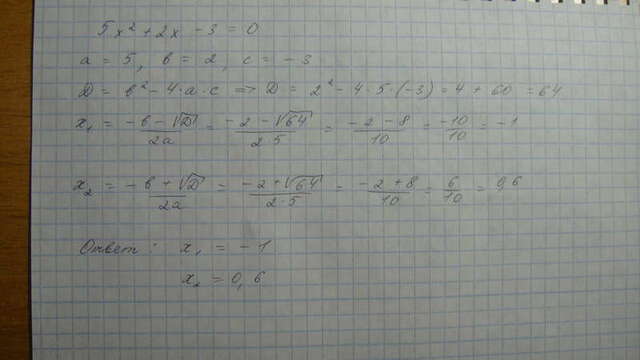 5x² + 2x - 3 = 0
a = 5, b = 2, c = -3
D = b² - 4·a·c => D = 2² - 4·5·(-3) = 4 + 60 = 64
x₁ = (-b - √D)/(2a) = (-2 - √64)/(2·5) = (-2 - 8)/10 = -10/10 = -1
x₂ = (-b + √D)/(2a) = (-2 + √64)/(2·5) = (-2 + 8)/10 = 6/10 = 0,6
Ответ: x₁ = -1
x₂ = 0,6